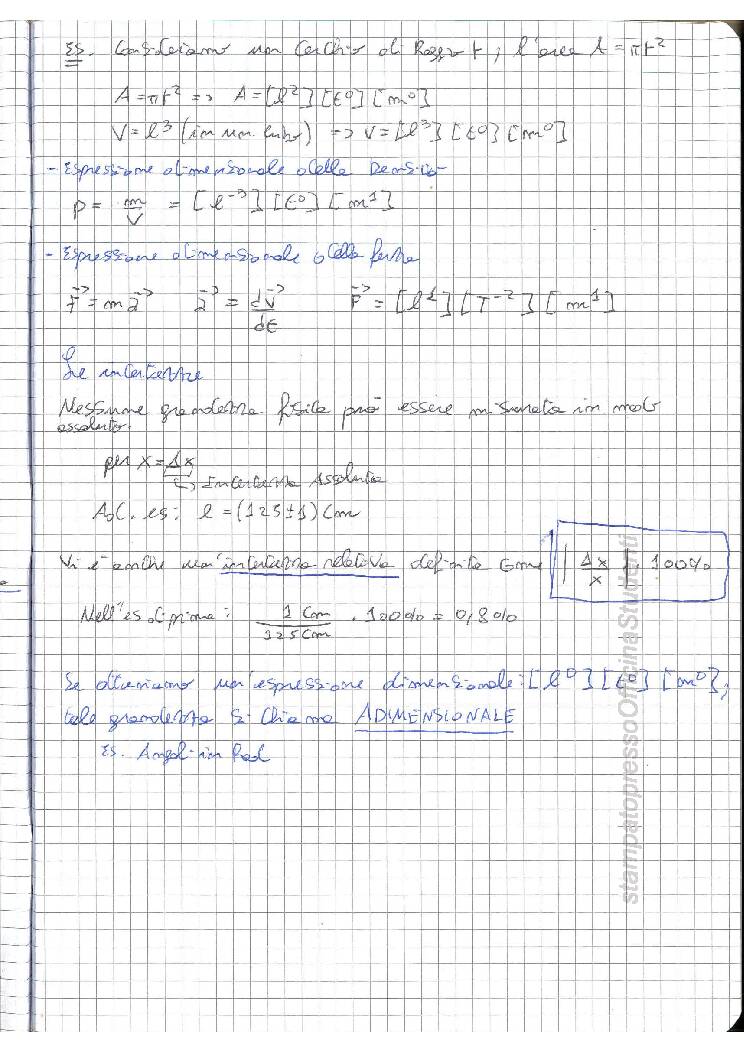 Es. Consideriamo un cerchio di Raggio r, l'area A = πr²
A = πr² => A = [l²] [t⁰] [m⁰]
V = l³ (in un cubo) => V = [l³] [t⁰] [m⁰]
- Espressione dimensionale della Densità
ρ = m/V = [l⁻³] [t⁰] [m¹]
- Espressione dimensionale della forza
F⃗ = m a⃗ a⃗ = dv⃗/dt F⃗ = [l¹] [T⁻²] [m¹]
Le incertezze
Nessuna grandezza fisica può essere misurata in modo
assoluto.
per x = Δx
↳ Incertezza Assoluta
Ad. es: l = (125±1) cm
Vi è anche un'incertezza relativa definita come |Δx/x| · 100%
Nell'es di prima: 1 cm/125 cm · 100% = 0,8%
Se otteniamo un'espressione dimensionale: [l⁰] [t⁰] [m⁰],
tale grandezza si chiama ADIMENSIONALE
Es. Angoli in Rad
stampatopressoOfficinaStudenti